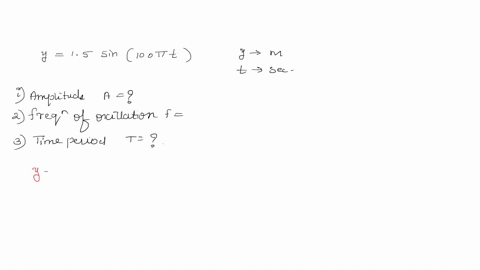 y = 1.5 sin (100πt)
y → m
t → sec.
1) Amplitude A = ?
2) freqⁿ of oscillation f =
3) Time period T = ?
y -